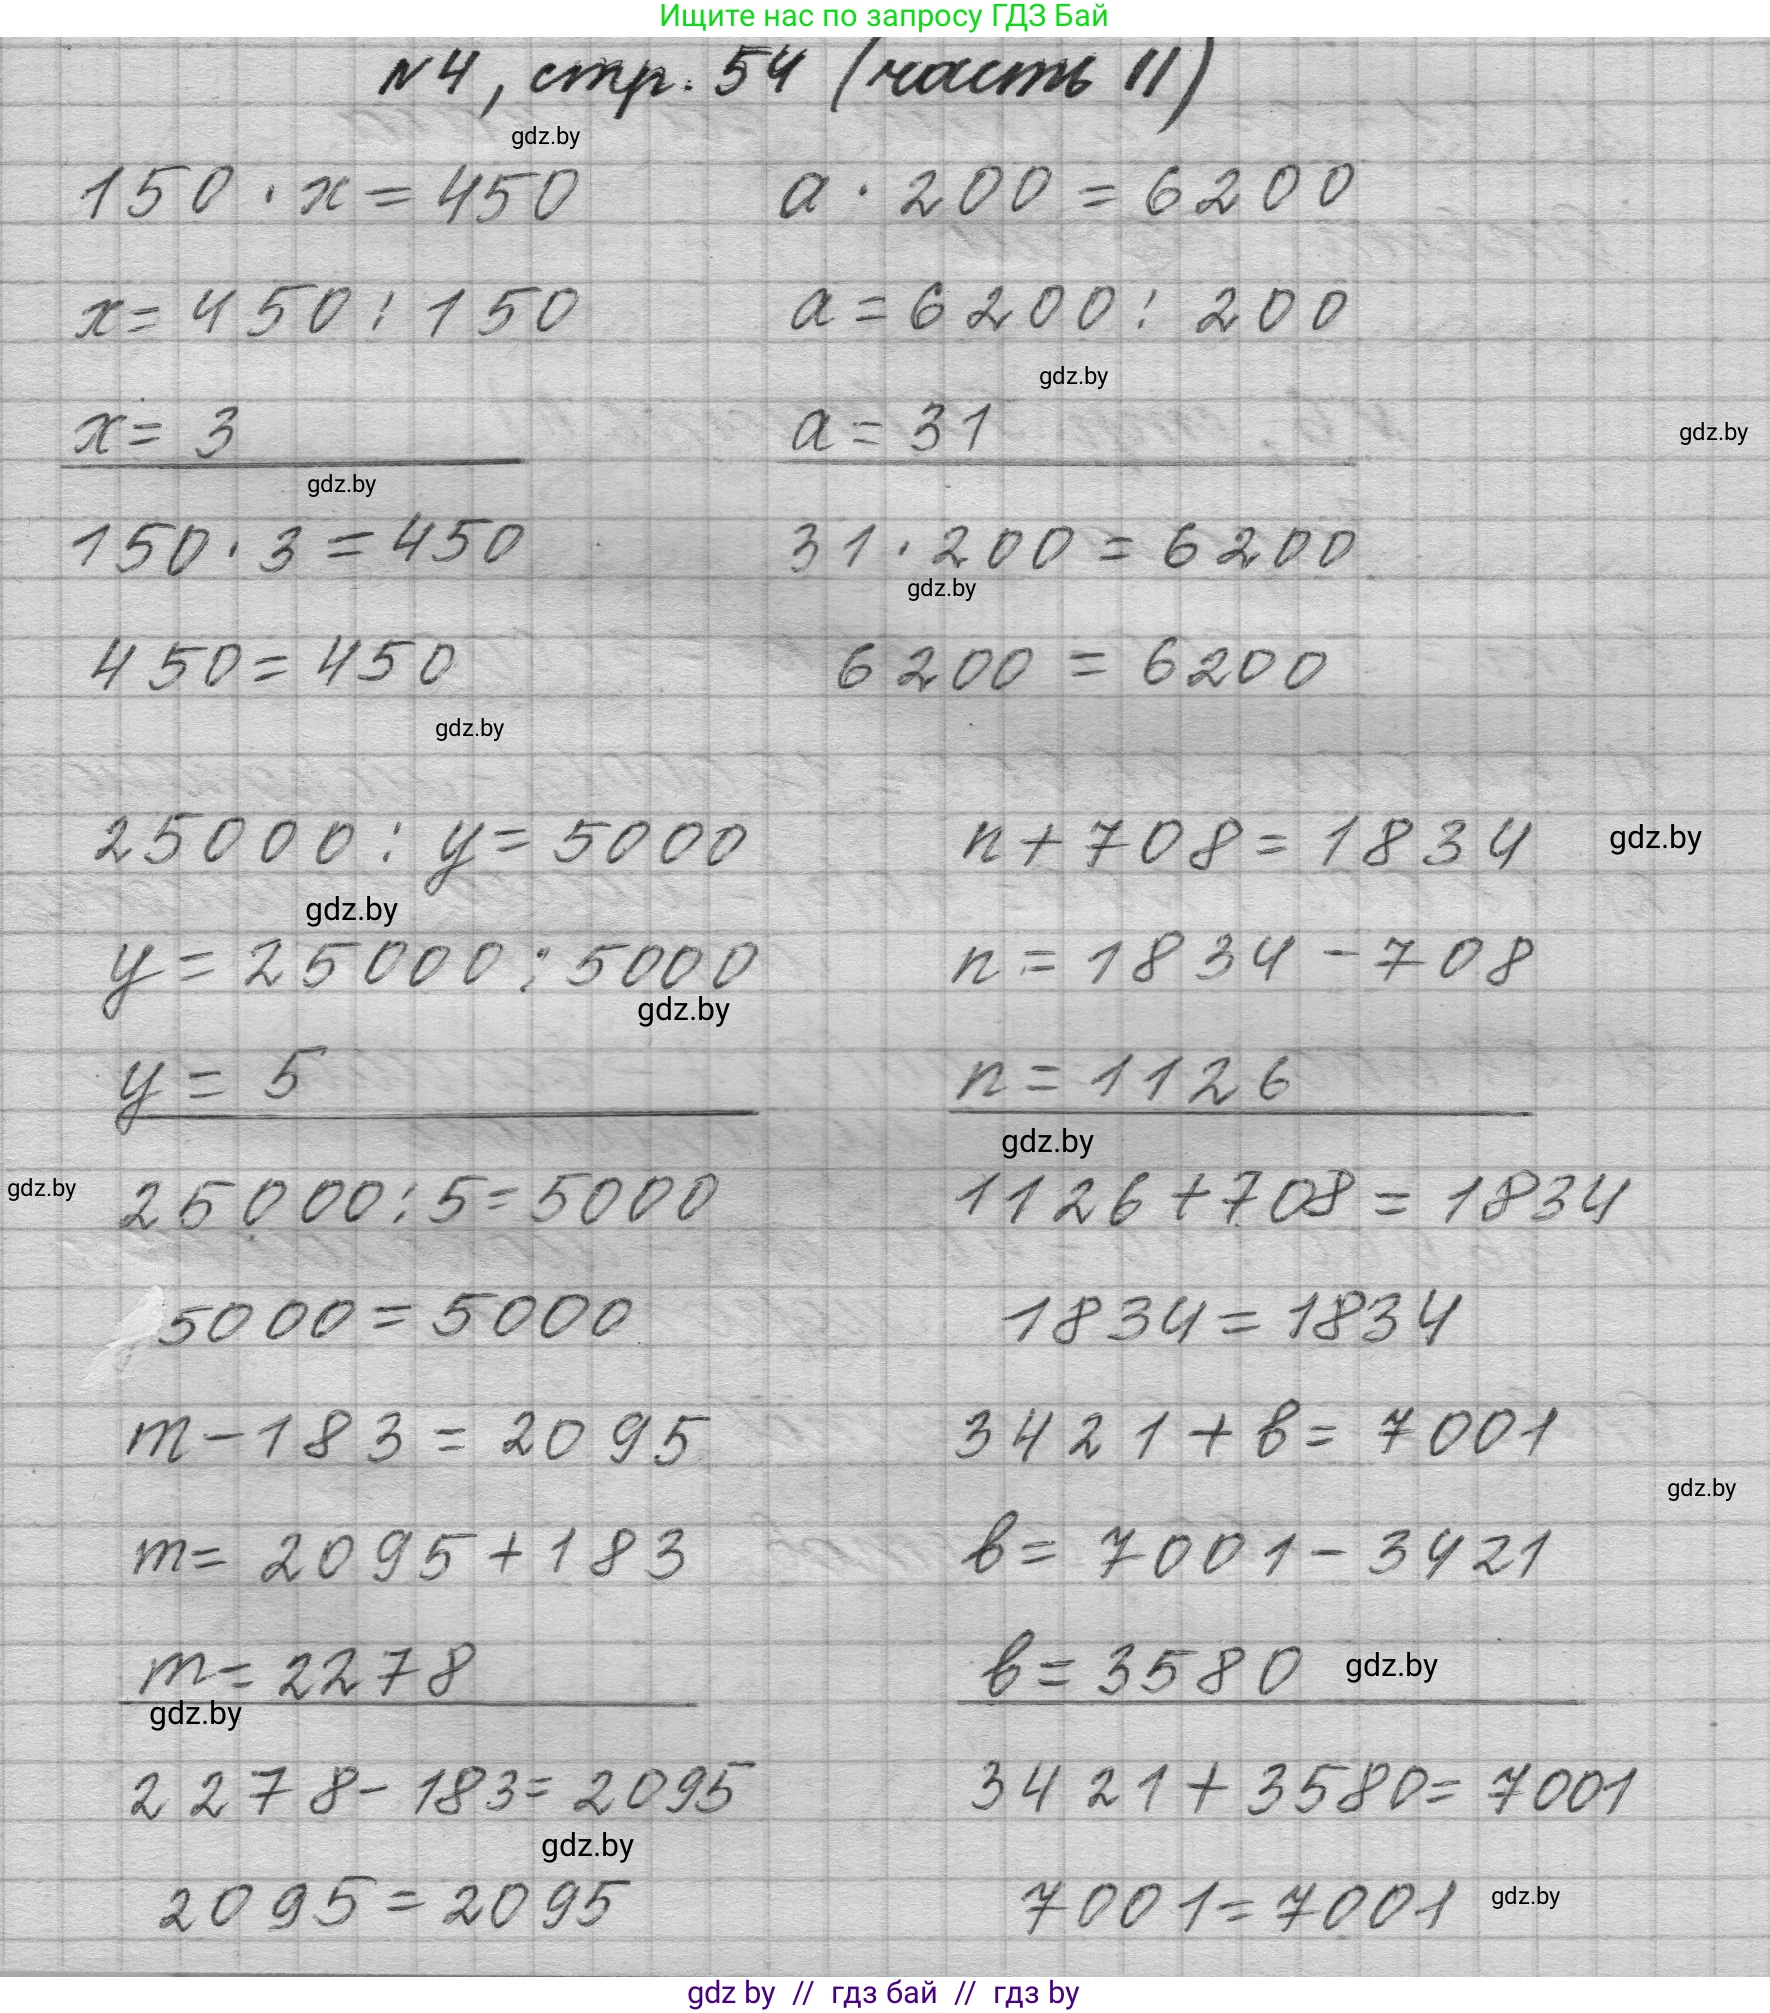 Ищите нас по запросу ГДЗ Бай
N4, стр. 54 (часть II)
gdz.by
150 · x = 450
a · 200 = 6200
x = 450 : 150
a = 6200 : 200
gdz.by
x = 3
a = 31
gdz.by
gdz.by
150 · 3 = 450
31 · 200 = 6200
gdz.by
450 = 450
6200 = 6200
gdz.by
25000 : y = 5000
n + 708 = 1834
gdz.by
gdz.by
y = 25000 : 5000
n = 1834 - 708
gdz.by
y = 5
n = 1126
gdz.by
gdz.by
25000 : 5 = 5000
1126 + 708 = 1834
5000 = 5000
1834 = 1834
m - 183 = 2095
3421 + b = 7001
gdz.by
m = 2095 + 183
b = 7001 - 3421
m = 2278
b = 3580
gdz.by
gdz.by
2278 - 183 = 2095
3421 + 3580 = 7001
gdz.by
2095 = 2095
7001 = 7001
gdz.by
gdz by // гдз бай // гдз by